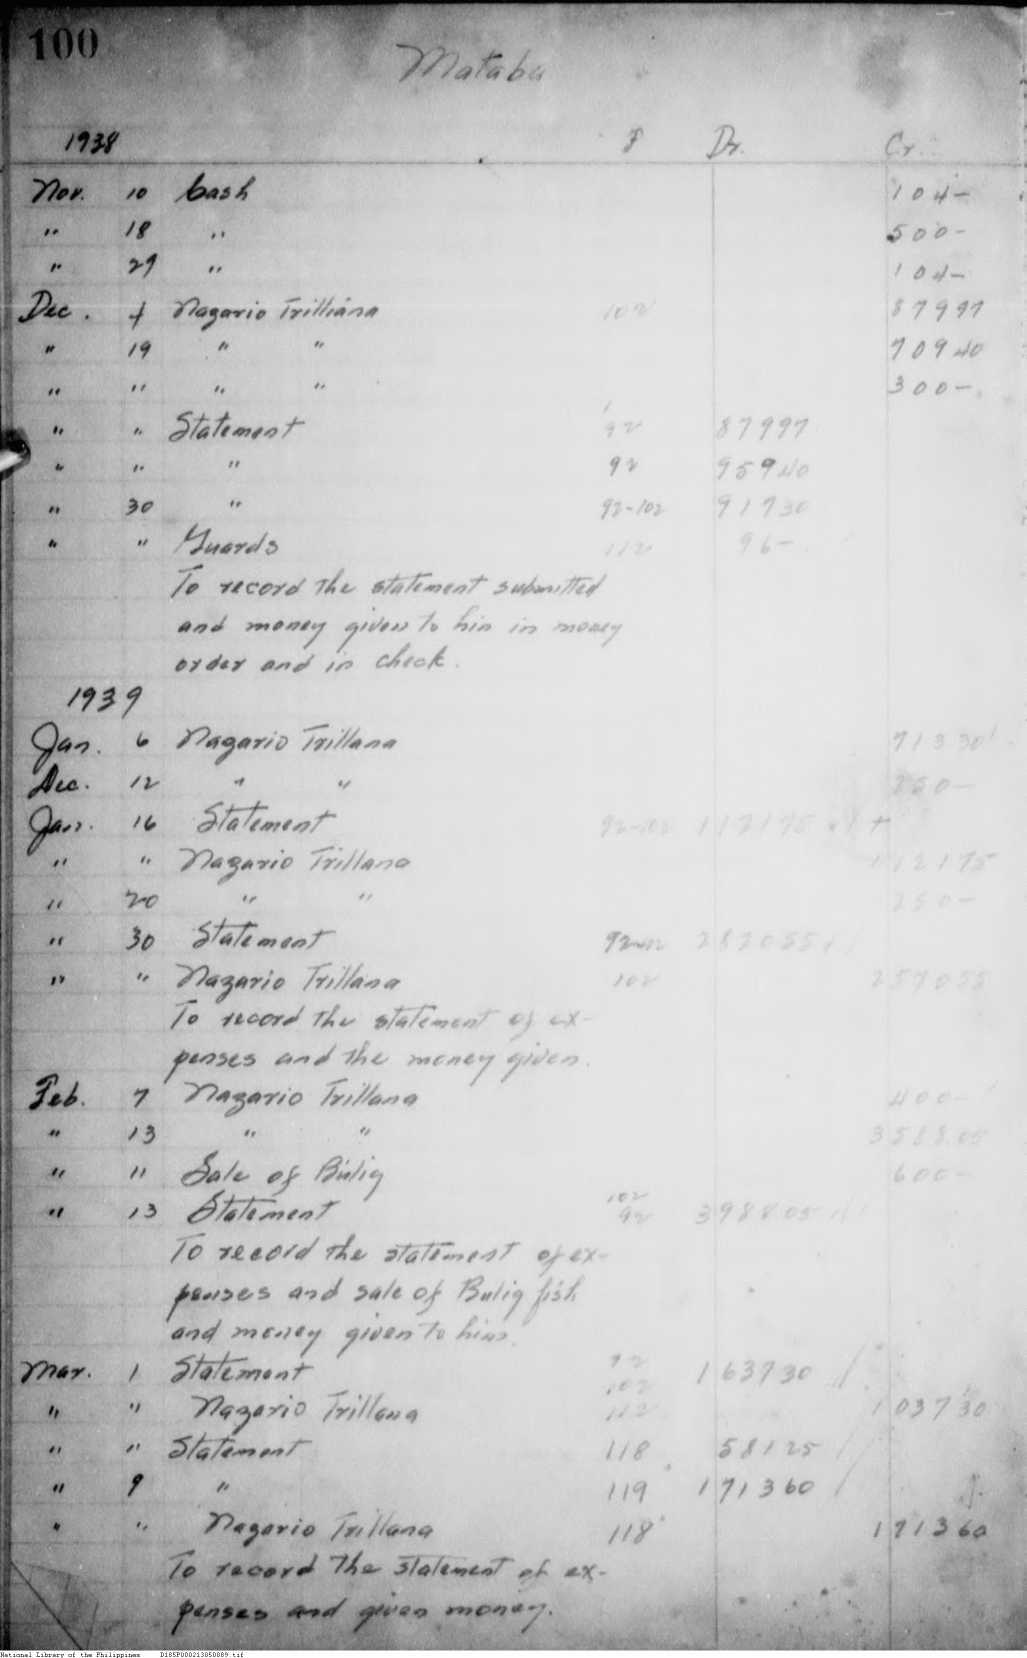 100
Mataba
1938 F Dr. Cr.
Nov. 10 Cash 104-
" 18 " 500-
" 29 " 104-
Dec. 4 Nazario Trilliana 102 87997
" 19 " " 70940
" " " " 300-
" " Statement 92 87997
" " " 92 95940
" 30 " 92-102 91730
" " Guards 112 96-
To record the statement submitted
and money given to him in money
order and in check.
1939
Jan. 6 Nazario Trillana 71330
Dec. 12 " " 250-
Jan. 16 Statement 92-102 112175
" " Nazario Trillana 112175
" 20 " " 250-
" 30 Statement 282055
" " Nazario Trillana 102 257055
To record the statement of ex-
penses and the money given.
Feb. 7 Nazario Trillana 400-
" 13 " " 358805
" " Sale of Bulig 600-
" 13 Statement 102 92 398805
To record the statement of ex-
penses and sale of Bulig fish
and money given to him.
Mar. 1 Statement 92 102 163730
" " Nazario Trillana 112 103730
" " Statement 118 58125
" 9 " 119 171360
" " Nazario Trillana 118 171360
To record the statement of ex-
penses and given money.
National Library of the Philippines D185P000213050089.tif